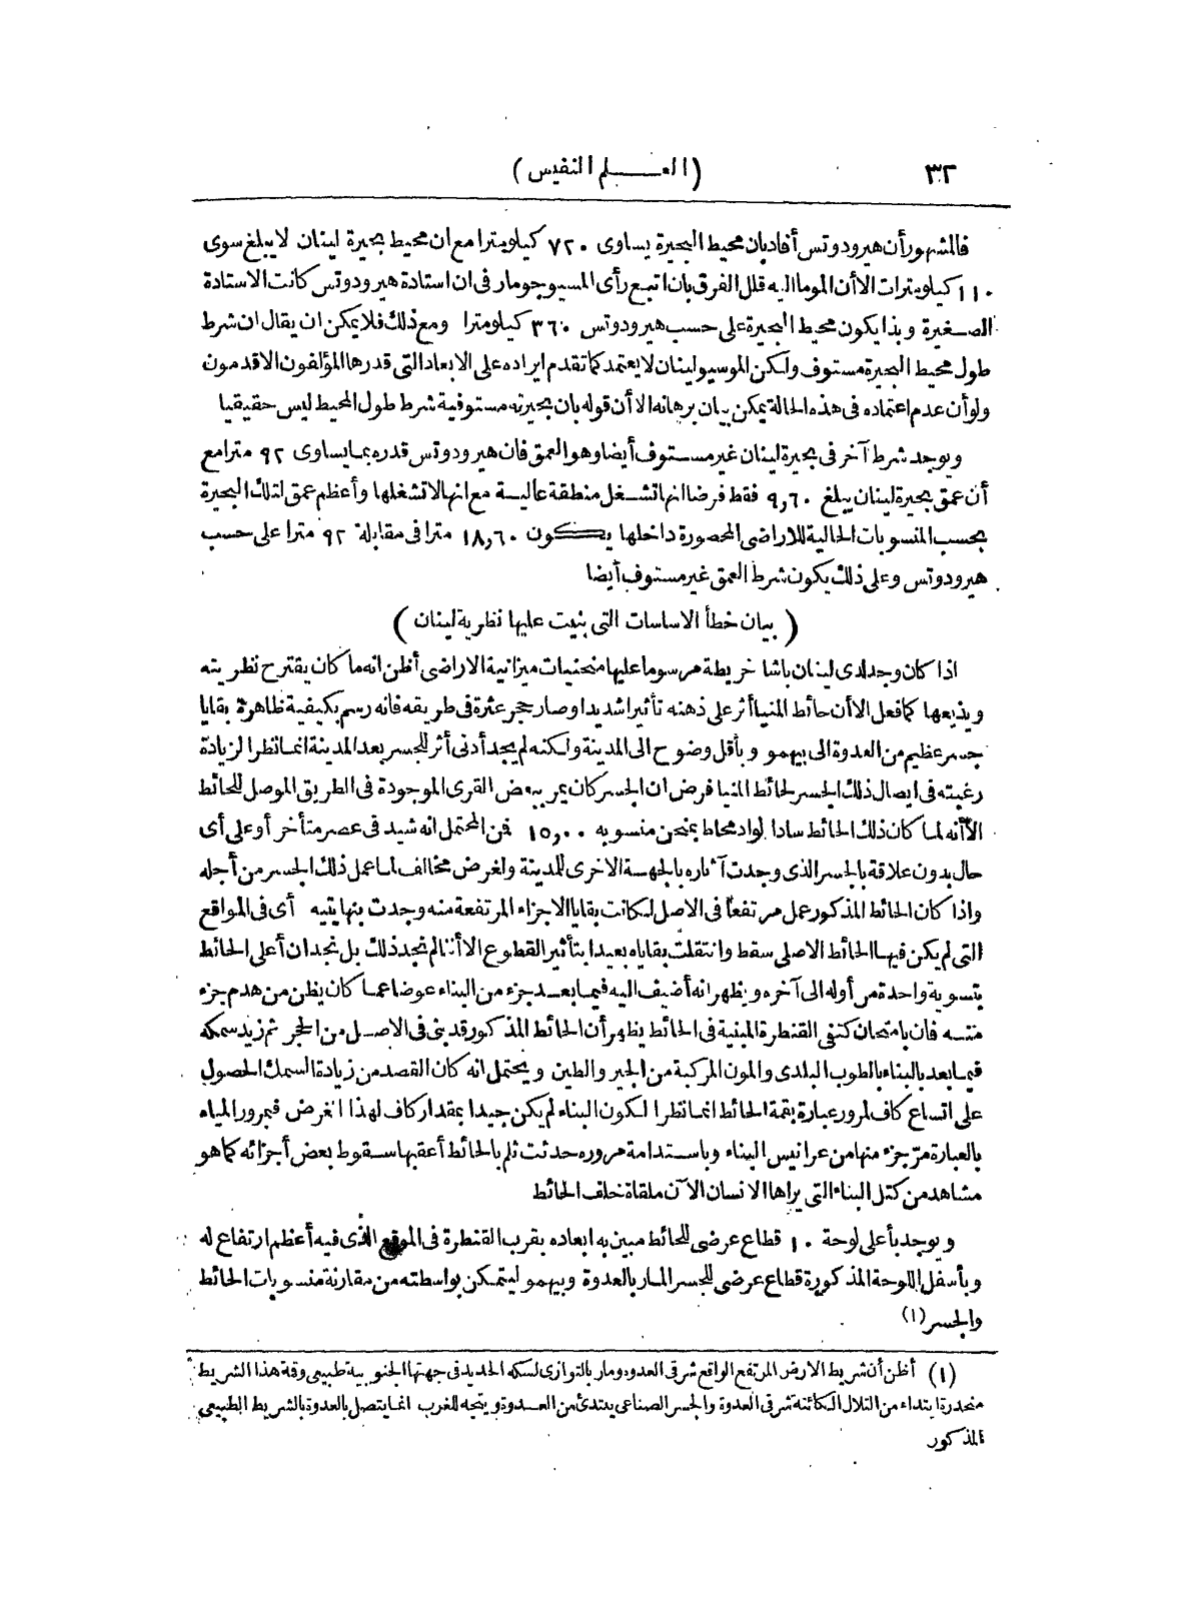 ٣٢
(العلم النفيس)
فالمشهور أن هيرودوتس أفاد بان محيط البحيرة يساوى ٧٢٠ كيلومترا مع ان محيط بحيرة لينان لا يبلغ سوى
١١٠ كيلومترات الا أن الموما اليه قلل الفرق بان اتبع رأى المسيو جومار فى ان استادة هيرودوتس كانت الاستادة
الصغيرة وبذا يكون محيط البحيرة على حسب هيرودوتس ٣٦٠ كيلومترا ومع ذلك فلا يمكن ان يقال ان شرط
طول محيط البحيرة مستوف ولكن الموسيو لينان لا يعتمد كما تقدم ايراده على الابعاد التى قدرها المؤلفون الاقدمون
ولو أن عدم اعتماده فى هذه الحالة يمكن بيان برهانه الا أن قوله بان بحيرته مستوفية شرط طول المحيط ليس حقيقيا
ويوجد شرط آخر فى بحيرة لينان غير مستوف أيضا وهو العمق فان هيرودوتس قدره بما يساوى ٩٢ مترا مع
أن عمق بحيرة لينان يبلغ ٩,٦٠ فقط فرضا انها تشغل منطقة عالية مع انها لا تشغلها وأعظم عمق لتلك البحيرة
بحسب المنسوبات الحالية للاراضى المحصورة داخلها يكون ١٨,٦٠ مترا فى مقابلة ٩٢ مترا على حسب
هيرودوتس وعلى ذلك يكون شرط العمق غير مستوف أيضا
(بيان خطأ الاساسات التى بنيت عليها نظرية لينان)
اذا كان وجد لدى لينان باشا خريطة مرسوما عليها منحنيات ميزانية الاراضى أظن انه ما كان يقترح نظريته
ويذيعها كما فعل الا أن حائط المنيا أثر على ذهنه تأثيرا شديدا وصار حجر عثرة فى طريقه فانه رسم بكيفية ظاهرة بقايا
جسر عظيم من العدوة الى بيهمو وبأقل وضوح الى المدينة ولكنه لم يجد أدنى أثر للجسر بعد المدينة انما نظرا لزيادة
رغبته فى ايصال ذلك الجسر لحائط المنيا فرض ان الجسر كان يمر ببعض القرى الموجودة فى الطريق الموصل للحائط
الا أنه لما كان ذلك الحائط سادا لواد محاط بمنحن منسوبه ١٥,٠٠ فمن المحتمل انه شيد فى عصر متأخر أو على أى
حال بدون علاقة بالجسر الذى وجدت آثاره بالجهة الاخرى للمدينة ولغرض مخالف لما عمل ذلك الجسر من أجله
واذا كان الحائط المذكور عمل مرتفعا فى الاصل لكانت بقايا الاجزاء المرتفعة منه وجدت بنهايتيه أى فى المواقع
التى لم يكن فيها الحائط الاصلى سقط وانتقلت بقاياه بعيدا بتأثير القطوع الا أننا لم نجد ذلك بل نجد ان أعلى الحائط
بتسوية واحدة من أوله الى آخره ويظهر انه أضيف اليه فيما بعد جزء من البناء عوضا عما كان يظن من هدم جزء
منه فان بامتحان كتفى القنطرة المبنية فى الحائط يظهر أن الحائط المذكور قد بنى فى الاصل من الحجر ثم زيد سمكه
فيما بعد بالبناء بالطوب البلدى والمون المركبة من الجير والطين ويحتمل انه كان القصد من زيادة السمك الحصول
على اتساع كاف لمرور عبارة بقمة الحائط انما نظرا لكون البناء لم يكن جيدا بمقدار كاف لهذا الغرض فبمرور المياه
بالعبارة مرّ جزء منها من عرانيس البناء وباستدامة مروره حدثت ثلم بالحائط أعقبها سقوط بعض أجزائه كما هو
مشاهد من كتل البناء التى يراها الانسان الآن ملقاة خلف الحائط
ويوجد بأعلى لوحة ١٠ قطاع عرضى للحائط مبين به ابعاده بقرب القنطرة فى الموقع الذى فيه أعظم ارتفاع له
وبأسفل اللوحة المذكورة قطاع عرضى للجسر المار بالعدوة وبيهمو ليتمكن بواسطته من مقارنة منسوبات الحائط
والجسر (١)
(١) أظن أن شريط الارض المرتفع الواقع شرقى العدوه ومار بالتوازى لسكه الحديد فى جهتها الجنوبية طبيعى وقة هذا الشريط
منحدرة ابتداء من التلال الكائنة شرقى العدوة والجسر الصناعى يبتدئ من العدوة ويتجه للغرب انما يتصل بالعدوة بالشريط الطبيعى
المذكور